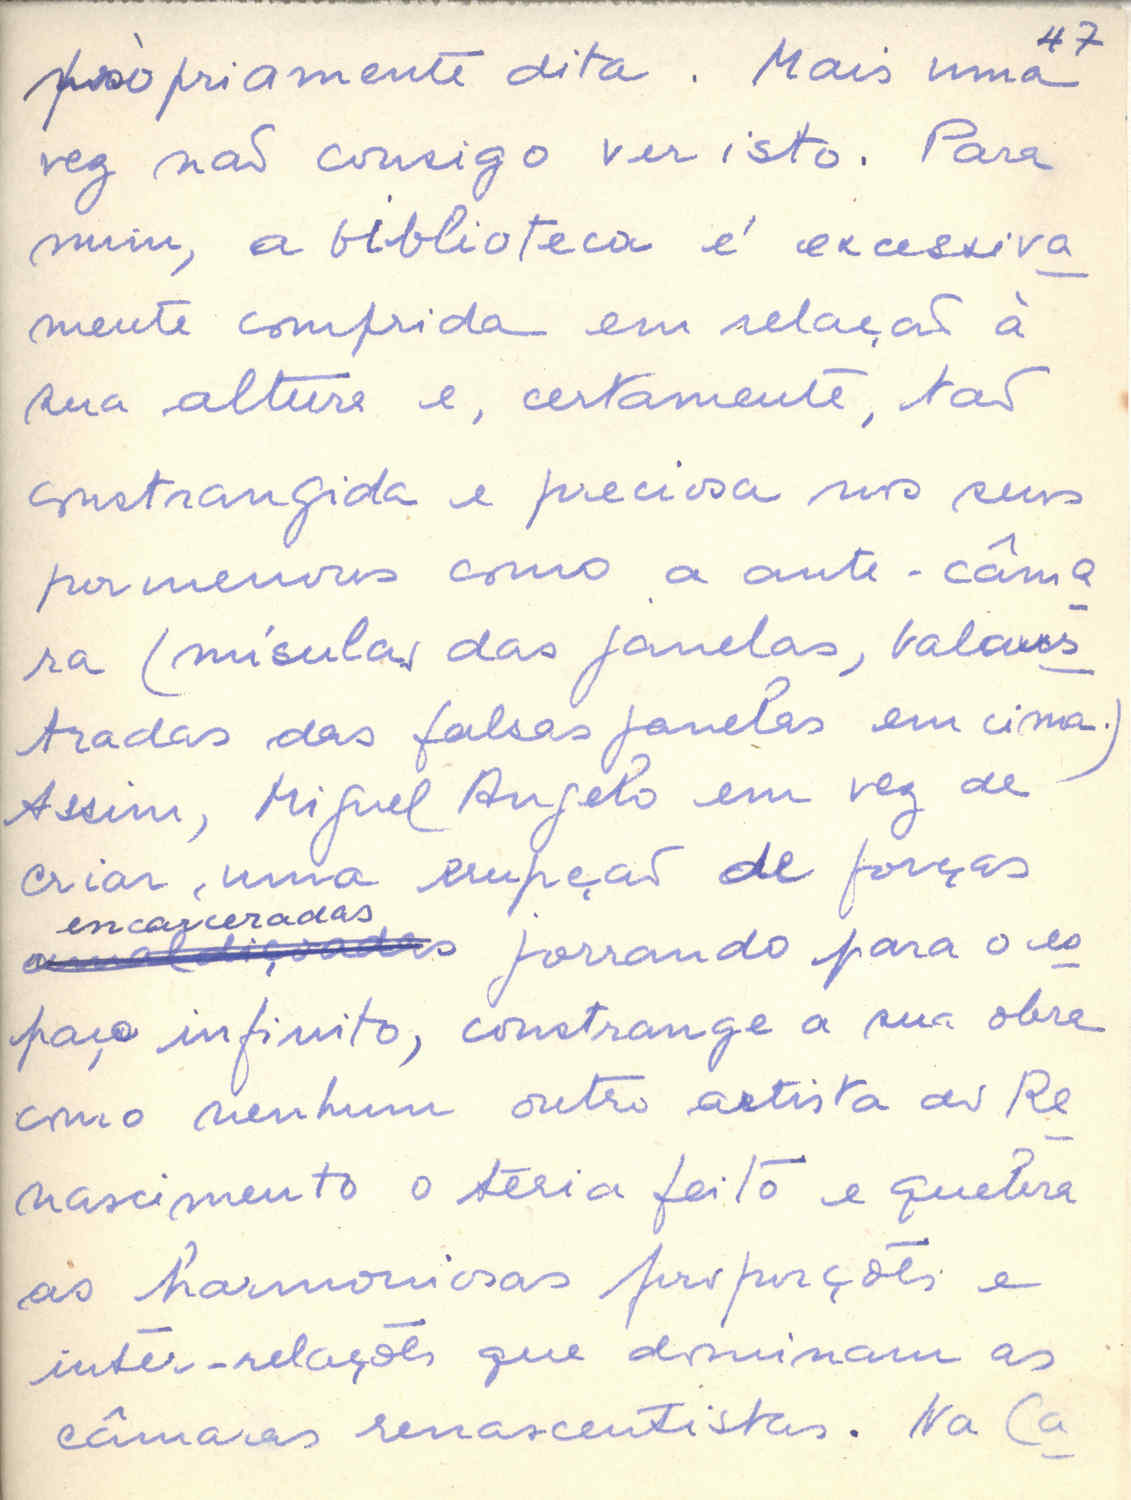 47
pròpriamente dita. Mais uma
vez não consigo ver isto. Para
mim, a biblioteca é excessiva
mente comprida em relação à
sua altura e, certamente, tão
constrangida e preciosa nos seus
pormenores como a ante-câma
ra (mísulas das janelas, balaus
tradas das falsas janelas em cima.)
Assim, Miguel Angelo em vez de
criar uma erupção de forças
encarceradas
amaldiçoadas jorrando para o es
paço infinito, constrange a sua obra
como nenhum outro artista do Re
nascimento o teria feito e quebra
as harmoniosas proporções e
inter-relações que dominam as
câmaras renascentistas. Na Ca